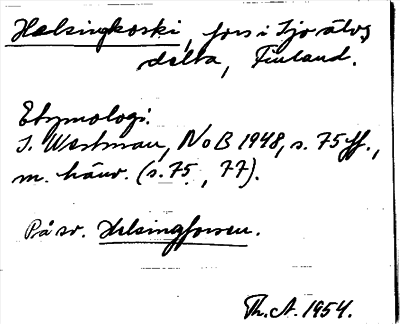 Helsingkoski, fors i Ijo älvs
delta, Finland.
Etymologi.
I. Westman, NoB 1948, s. 75 ff.,
m. hänv. (s. 75, 77).
På sv. Helsingforsen.
Th. A. 1954.